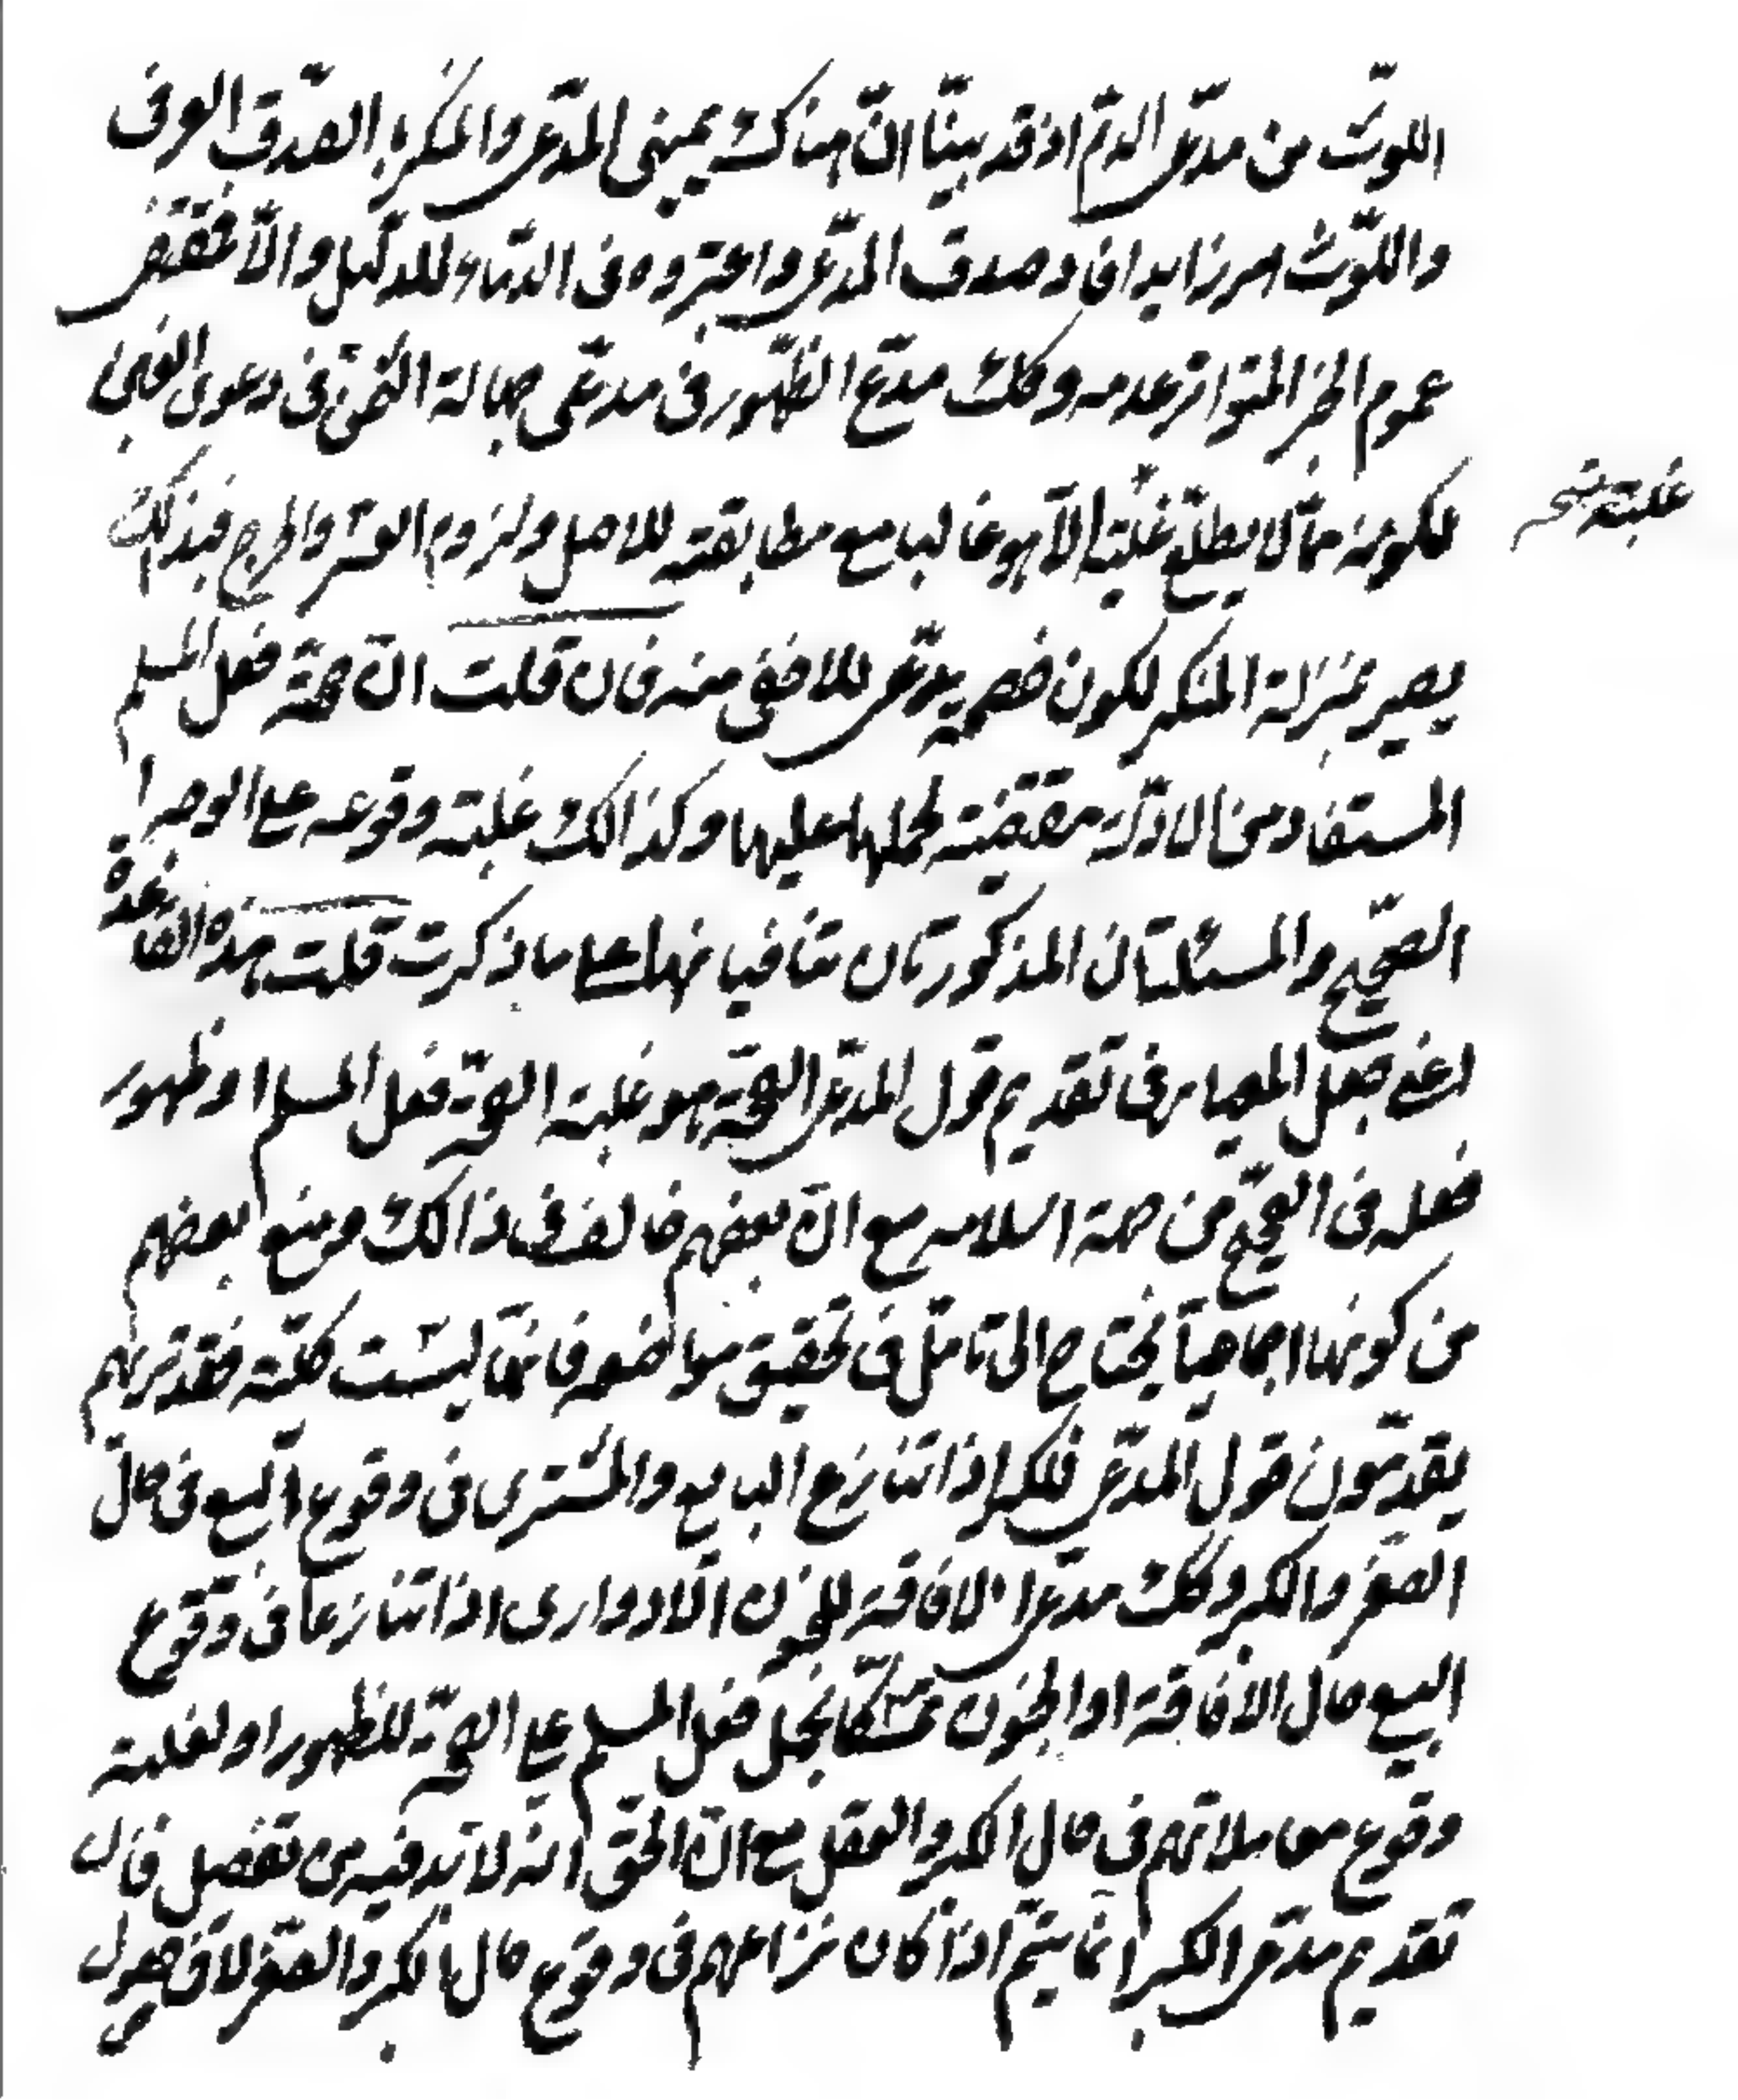 اللوث من مدعى الدم اذ قد بينّا انّ هناك يمينى المدّعى والمنكر الصدق العرفى
واللّوث امر زايد افاد صدق المدّعى واعتبروه فى الدماء للدليل والّا فمقتضى
عموم الخبر المتواتر عدمه وكك مدّع الظهور فى مدعى جهالة الثمن فى دعوى الغبن
لكونه ممّا لا يطلع غلبة الّا هو غالبا مع مطابقته للاصل ولزوم العسر والحرج فبذلك
غلبته نسخه
يصير بمنزلة المنكر لكون خصمه يدّعى للاخفى منه فان قلت انّ صحّة فعل المسلم
المستفاد من الادلّة مقتضية لحملها عليها وكذالك غلبة وقوعه على الوجه
الصّحيح والمسئلتان المذكورتان تنافيانها على ما ذكرت قلت هذه القاعدة
اعنى جعل المعيار فى تقديم قول المدعى الصحّة هو غلبة الصحّة فعل المسلم او ظهور
فعله فى الصحيح من جهة اسلامه مع انّ بعضهم خالف فى ذالك ومنع بعضهم
من كونها اجماعيّا يحتاج الى تامّل فى تحقيق مواضعه فانّها ليست كليّة فقد تريهم
يقدّمون قول المدّعى اذا تنازع البايع والمشترى فى وقوع البيع فى حال
الصغر والكبر وكك مدّعى الافاقة للمجنون الادوارى اذا تنازعا فى وقوع
البيع حال الافاقة او الجنون تمسّكا بحمل فعل المسلم على الصحّة للظهور او لغلبة
وقوع معاملاتهم فى حال الكبر والعقل مع انّ الحق انّه لا بدّ فيه من تفصيل فانّ
تقديم مدّعى الكبر انّما يتمّ اذا كان نزاعهم فى وقوع حال الكبر والصغر لا فى حصول